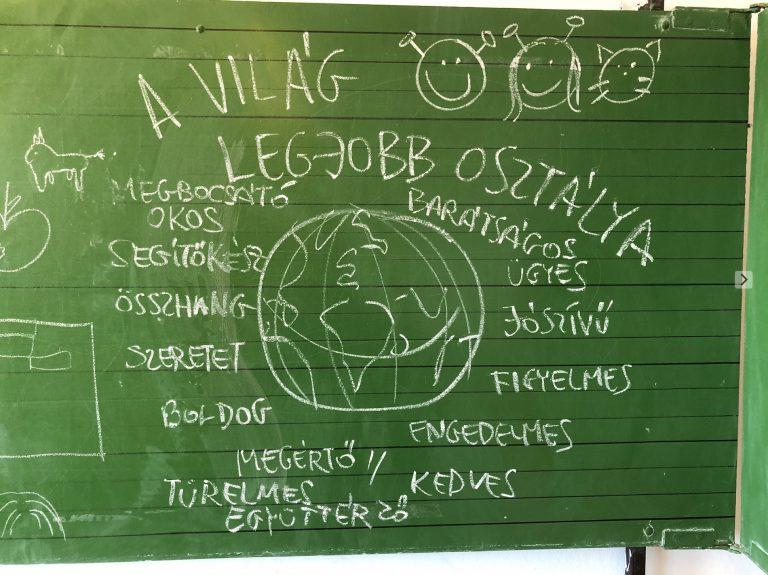 A VILÁG
LEGJOBB OSZTÁLYA
MEGBOCSÁTÓ
OKOS
SEGÍTŐKÉSZ
ÖSSZHANG
SZERETET
BOLDOG
MEGÉRTŐ
TÜRELMES
EGYÜTTÉRZŐ
BARÁTSÁGOS
ÜGYES
JÓSZÍVŰ
FIGYELMES
ENGEDELMES
KEDVES